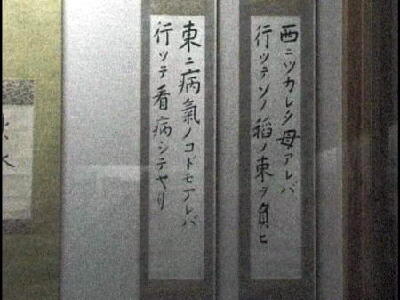 西ニツカレタ母アレバ
行ツテソノ稲ノ束ヲ負ヒ
東ニ病氣ノコドモアレバ
行ツテ看病シテヤリ